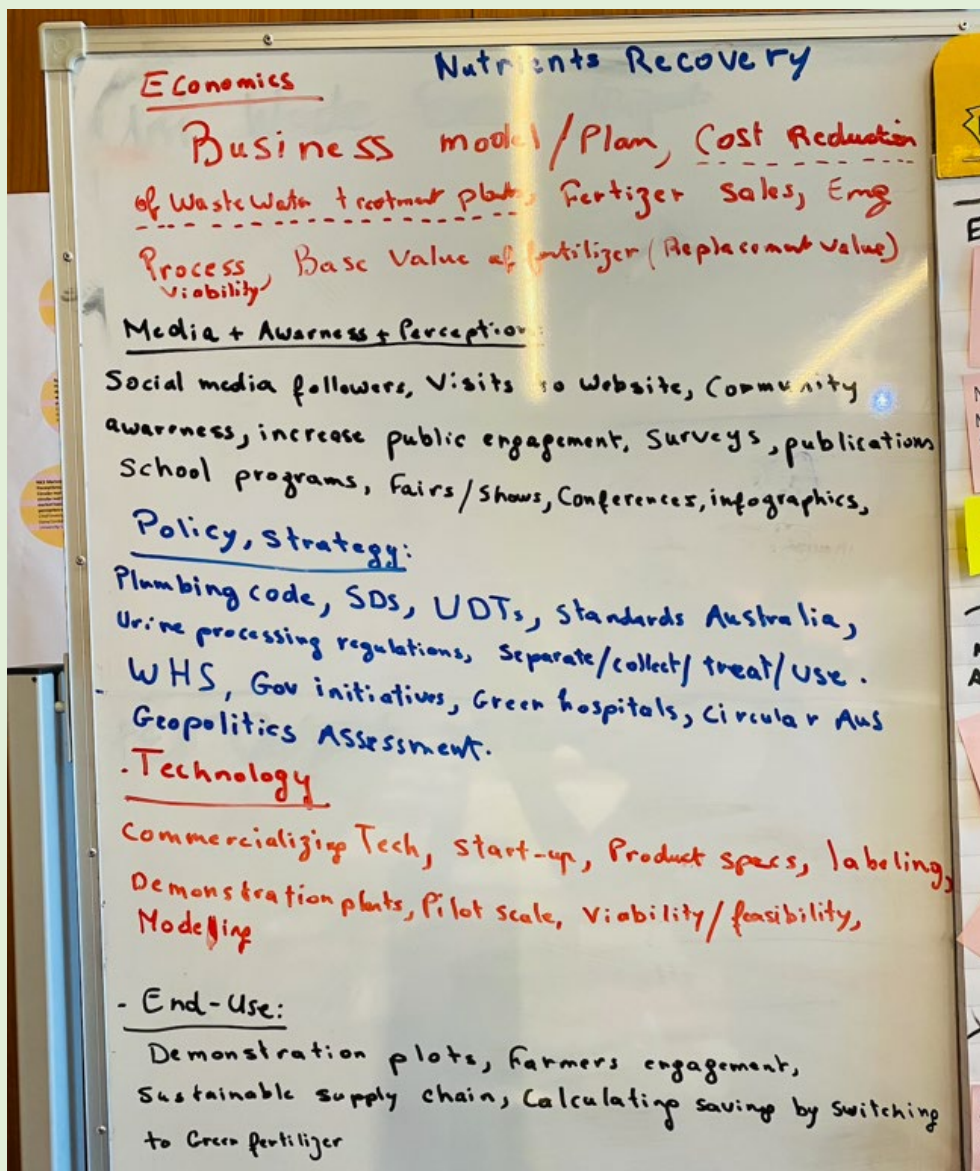 Nutrients Recovery
Economics
Business model/Plan, Cost Reduction
of WasteWater treatment plants, Fertizer Sales, Emg
Process Viability, Base Value of fertilizer (Replacement value)
Media + Awarness + Perception:
Social media followers, Visits to Website, Community
awareness, increase public engagement, Surveys, publications
School programs, Fairs/Shows, Conferences, infographics,
Policy, Strategy:
Plumbing code, SDS, UDTs, Standards Australia,
Urine processing regulations, Separate/collect/treat/use.
- WHS, Gov initiatives, Green hospitals, Circular Aus
Geopolitics Assessment.
. Technology
Commercializing Tech, Start-up, Product specs, labeling,
Demonstration plants, Pilot scale, Viability/feasibility,
Modeling
- End-Use:
Demonstration plots, Farmers engagement,
Sustainable supply chain, Calculating saving by switching
to Green fertilizer